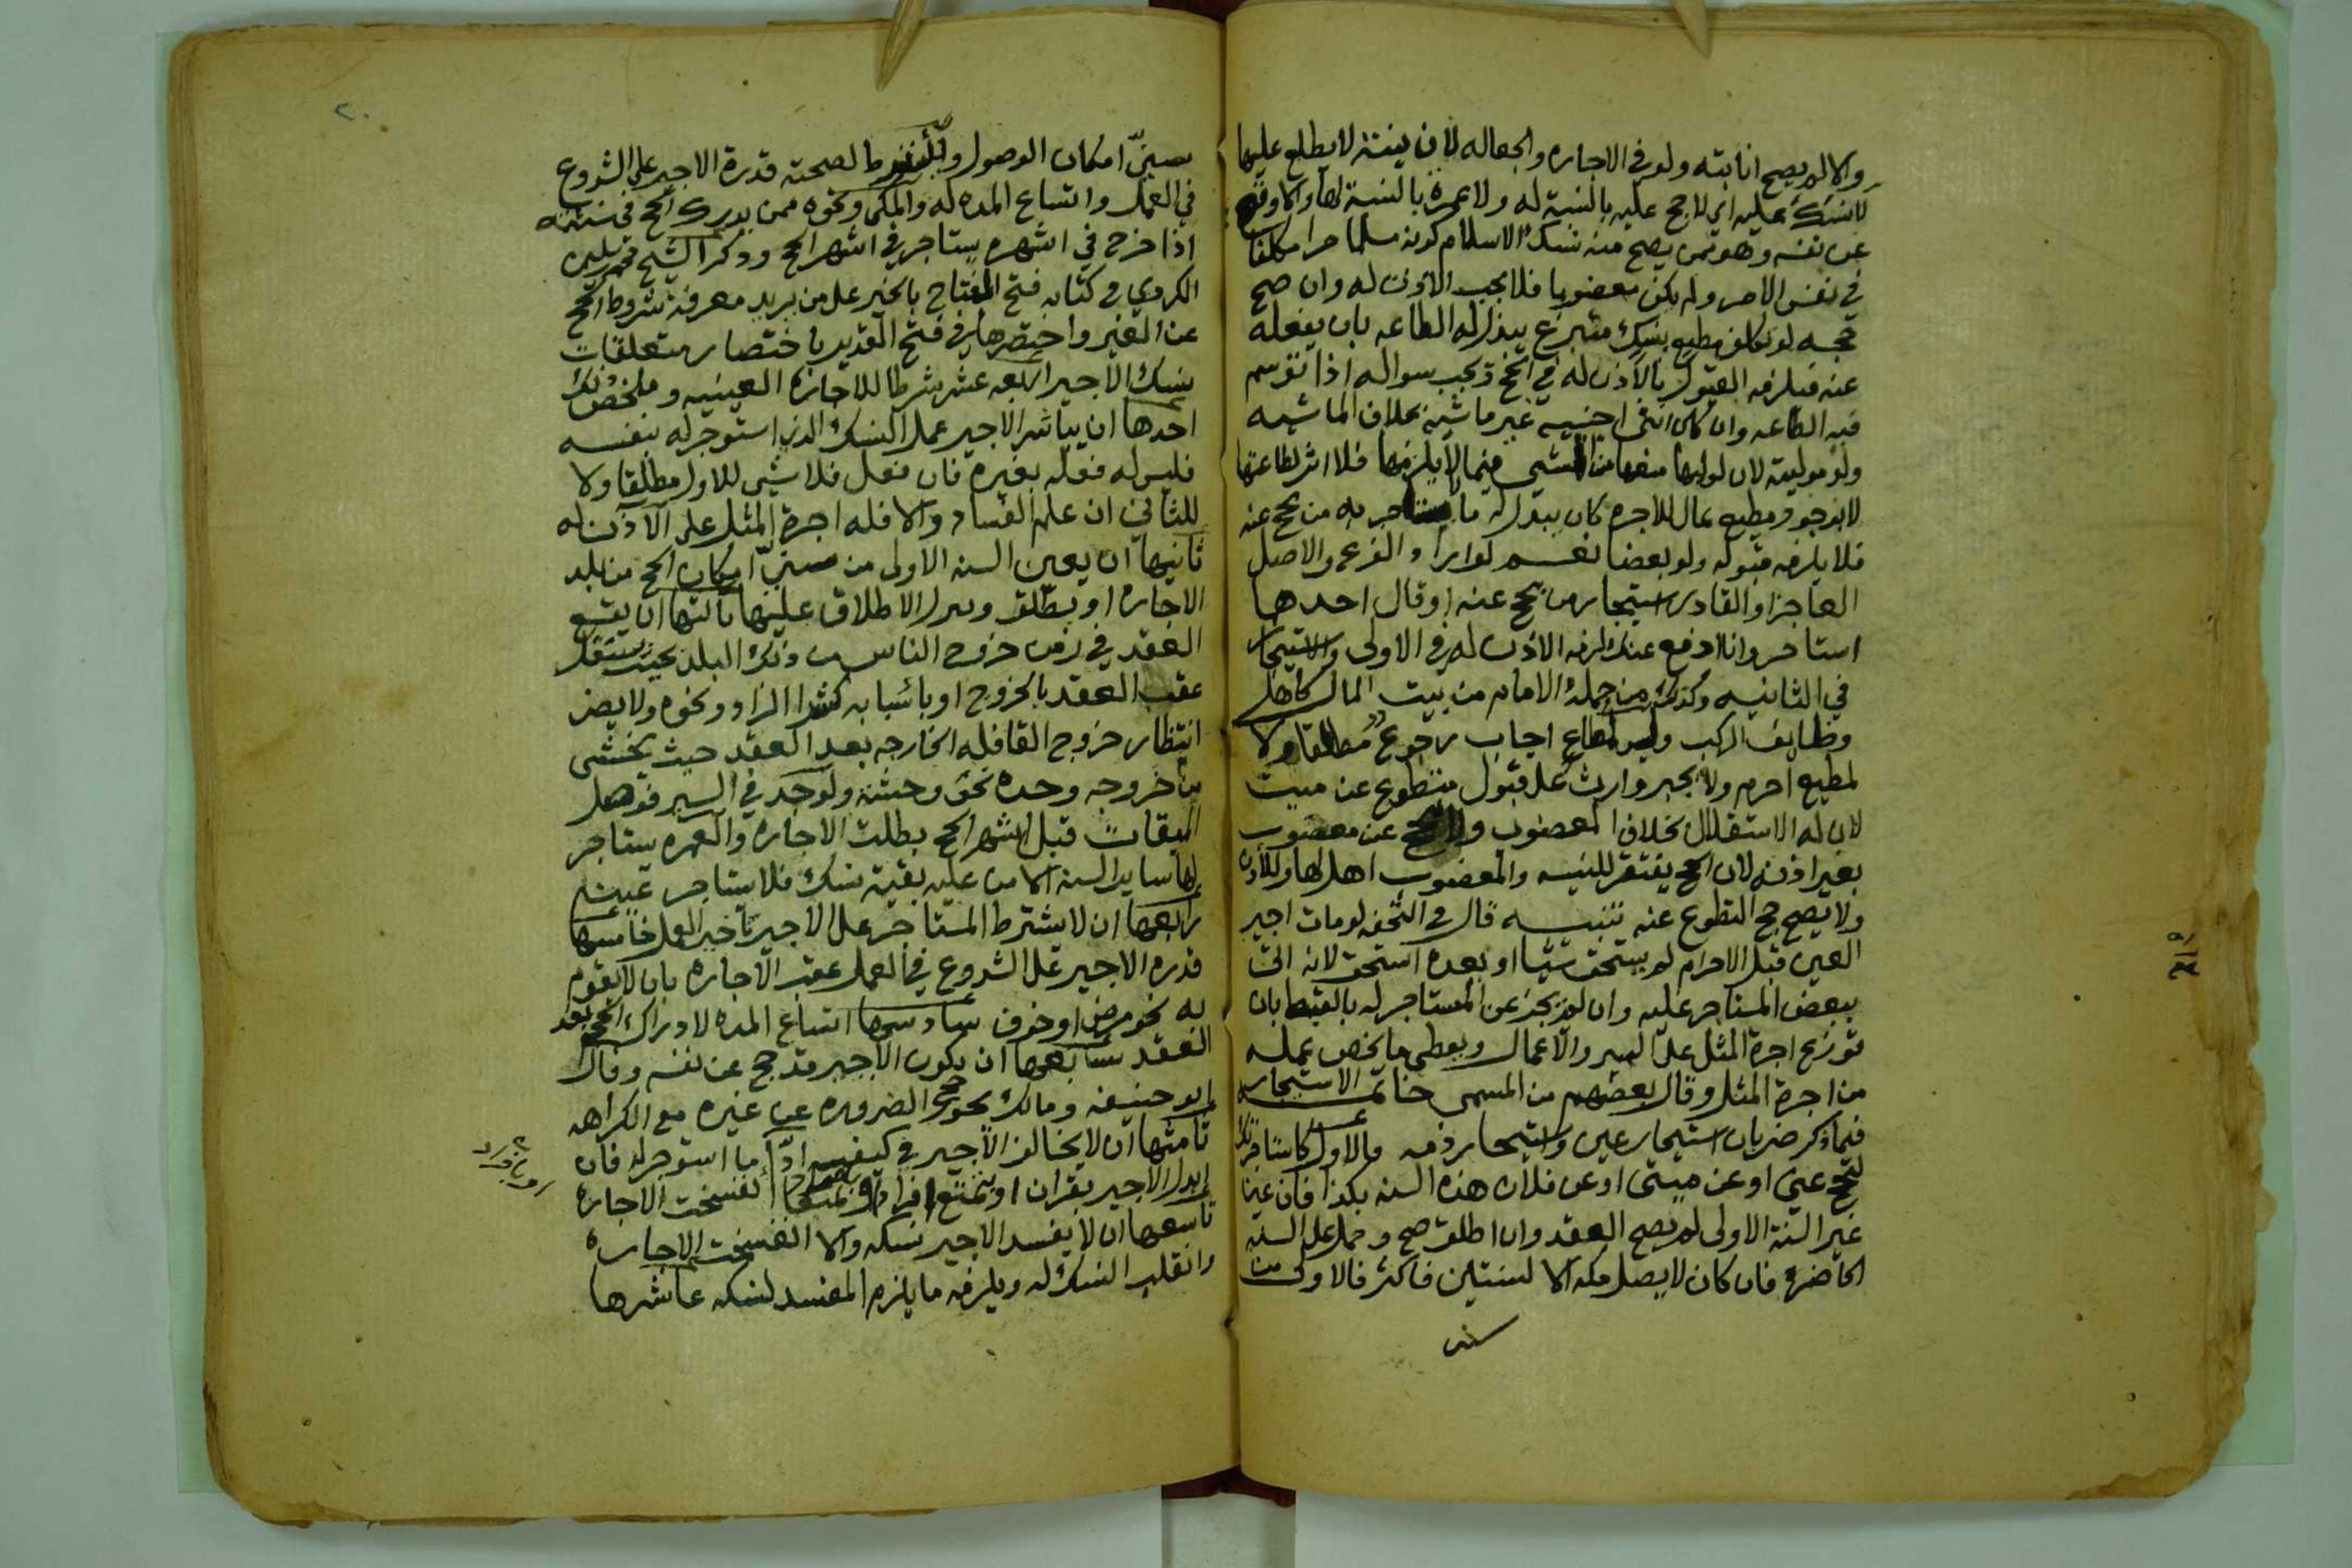 والا لم يصح انابته ولو في الاجاره والجعاله لان نيته لا يطلع عليها
لا نسك عليه اي لا حج عليه بالنسبة له ولا عمرة بالنسبة لها والا وقع
عن نفسه وهو ممن يصح منه نسك الاسلام كونه مسلما حرا مكلفا
في نفس الامر ولم يكن معضوبا فلا يجب الاذن له وان صح
حجه لو تكلف مطيع بنسك متبرع يبذل له الطاعه بان يفعله
عنه فيلزمه القبول بالاذن له في الحج ويجب سواله اذا توسم
فيه الطاعه وان كان انثى اجنبيه غير ماشية بخلاف الماشيه
ولو موليته لان لوليها منعها من المشي فيما لا يلزمها فلا اثر لطاعتها
لا بوجود مطيع بمال للاجره كان يبذل له ما يستاجر به من يحج عنه
فلا يلزمه قبوله ولو بعضا نعم لو اراد الفرع والاصل
العاجز او القادر استيجار من يحج عنه او قال احدهما
استاجر وانا ادفع عنك لزمه الاذن له في الاولى والاستيجار
في الثانيه وكذلك من جملة الامام من بيت المال كاهل
وظايف الركب وليس لمطاع اجاب رجوع مطلقا ولا
لمطيع احرم ولا يجبر وارث على قبول متطوع عن ميت
لان له الاستقلال بخلاف المعضوب ولا يصح عن معضوب
بغير اذنه لان الحج يفتقر للنيه والمعضوب اهل لها وللاذن
ولا يصح حج التطوع عنه تنبيه قال في التحفه لو مات اجير
العين قبل الاحرام لم يستحق شيا او بعده استحق لانه اتى
ببعض المستاجر عليه وان لم يجز عن المستاجر له بالقسط بان
توزع اجرة المثل على السير والاعمال ويعطى ما يخص عمله
من اجرة المثل وقال بعضهم من المسمى خاتمه الاستيجار
فيما ذكر ضربان استيجار عين واستيجار ذمه فالاول كاستاجرتك
لتحج عني او عن ميتي او عن فلان هذه السنه بكذا فان عينا
غير السنة الاولى لم يصح العقد وان اطلق صح وحمل على السنه
الحاضرة فان كان لا يصل مكه الا لسنتين فاكثر فالاولى من
سني
٢٠
سني امكان الوصول ويشترط لصحته قدرة الاجير على الشروع
في العمل واتساع المده له والمكي ونحوه ممن يدرك الحج في سنته
اذا خرج في اشهره يستاجر في اشهر الحج وذكر الشيخ محمد سليمن
الكردي في كتابه فتح الفتاح بالخير على من يريد معرفة شروط الحج
عن الغير واختصرها في فتح القدير باختصار متعلقات
نسك الاجير اربعه عشر شرطا للاجازه العينيه وملخص ذلك
احدها ان يباشر الاجير عمل النسك الذي استوجر له بنفسه
فليس له فعله بغيره فان فعل فلا شيى للاول مطلقا ولا
للثاني ان علم الفساد والا فله اجرة المثل على الاذن له
ثانيها ان يعين السنه الاولى من سني امكان الحج من بلد
الاجاره او يطلق وينزل الاطلاق عليها ثالثها ان يقع
العقد في زمن خروج الناس من ذلك البلد بحيث يشتغل
عقب العقد بالخروج او باسبابه كشرا الزاد ونحوه ولا يضر
انتظار خروج القافله الخارجه بعد العقد حيث يخشى
من خروجه وحده نحو وحشة ولو جد في السير فوصل
الميقات قبل اشهر الحج بطلت الاجاره والعمره يستاجر
لها ساير السنه الا من عليه بقية نسك فلا يستاجر عينه
رابعها ان لا يشترط المستاجر على الاجير تاخير العمل خامسها
قدره الاجير على الشروع في العمل عقب الاجاره بان لا يقوم
به نحو مرض او خوف سادسها اتساع المده لادراك الحج بعد
العقد سابعها ان يكون الاجير قد حج عن نفسه وقال
ابو حنيفه ومالك يجوز حج الضروره عن غيره مع الكراهه
ثامنها ان لا يخالف الاجير في كيفيه ادا ما استوجر له فان
ابدل الاجير بقران او تمتع افرادا انفسخت الاجارة
تاسعها ان لا يفسد الاجير نسكه والا انفسخت الاجاره
وانقلب النسك له ويلزمه ما يلزم المفسد لنسكه عاشرها